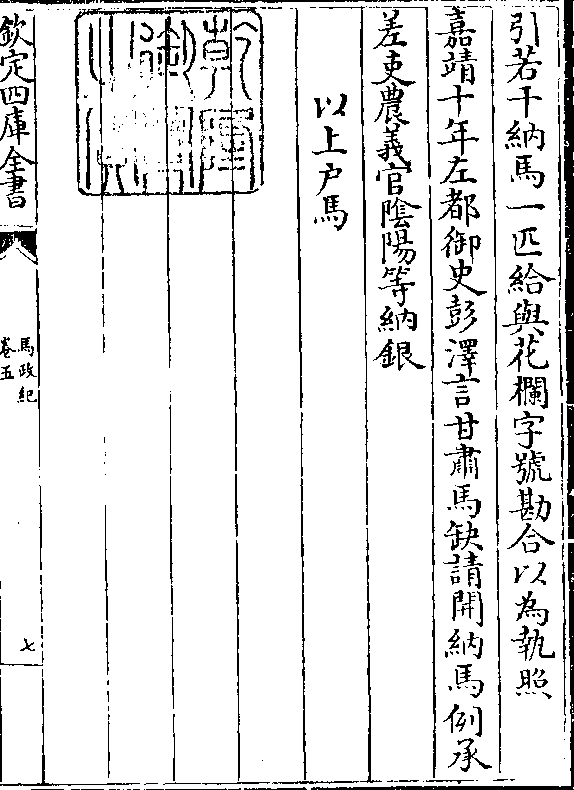 引若干納馬一匹給與花欄字號勘合以為執照
嘉靖十年左都御史彭澤言甘肅馬缺請開納馬例承
差吏農義官陰陽等納銀
以上户馬
乾隆御覽之寶
欽定四庫全書
馬政紀
卷五
七